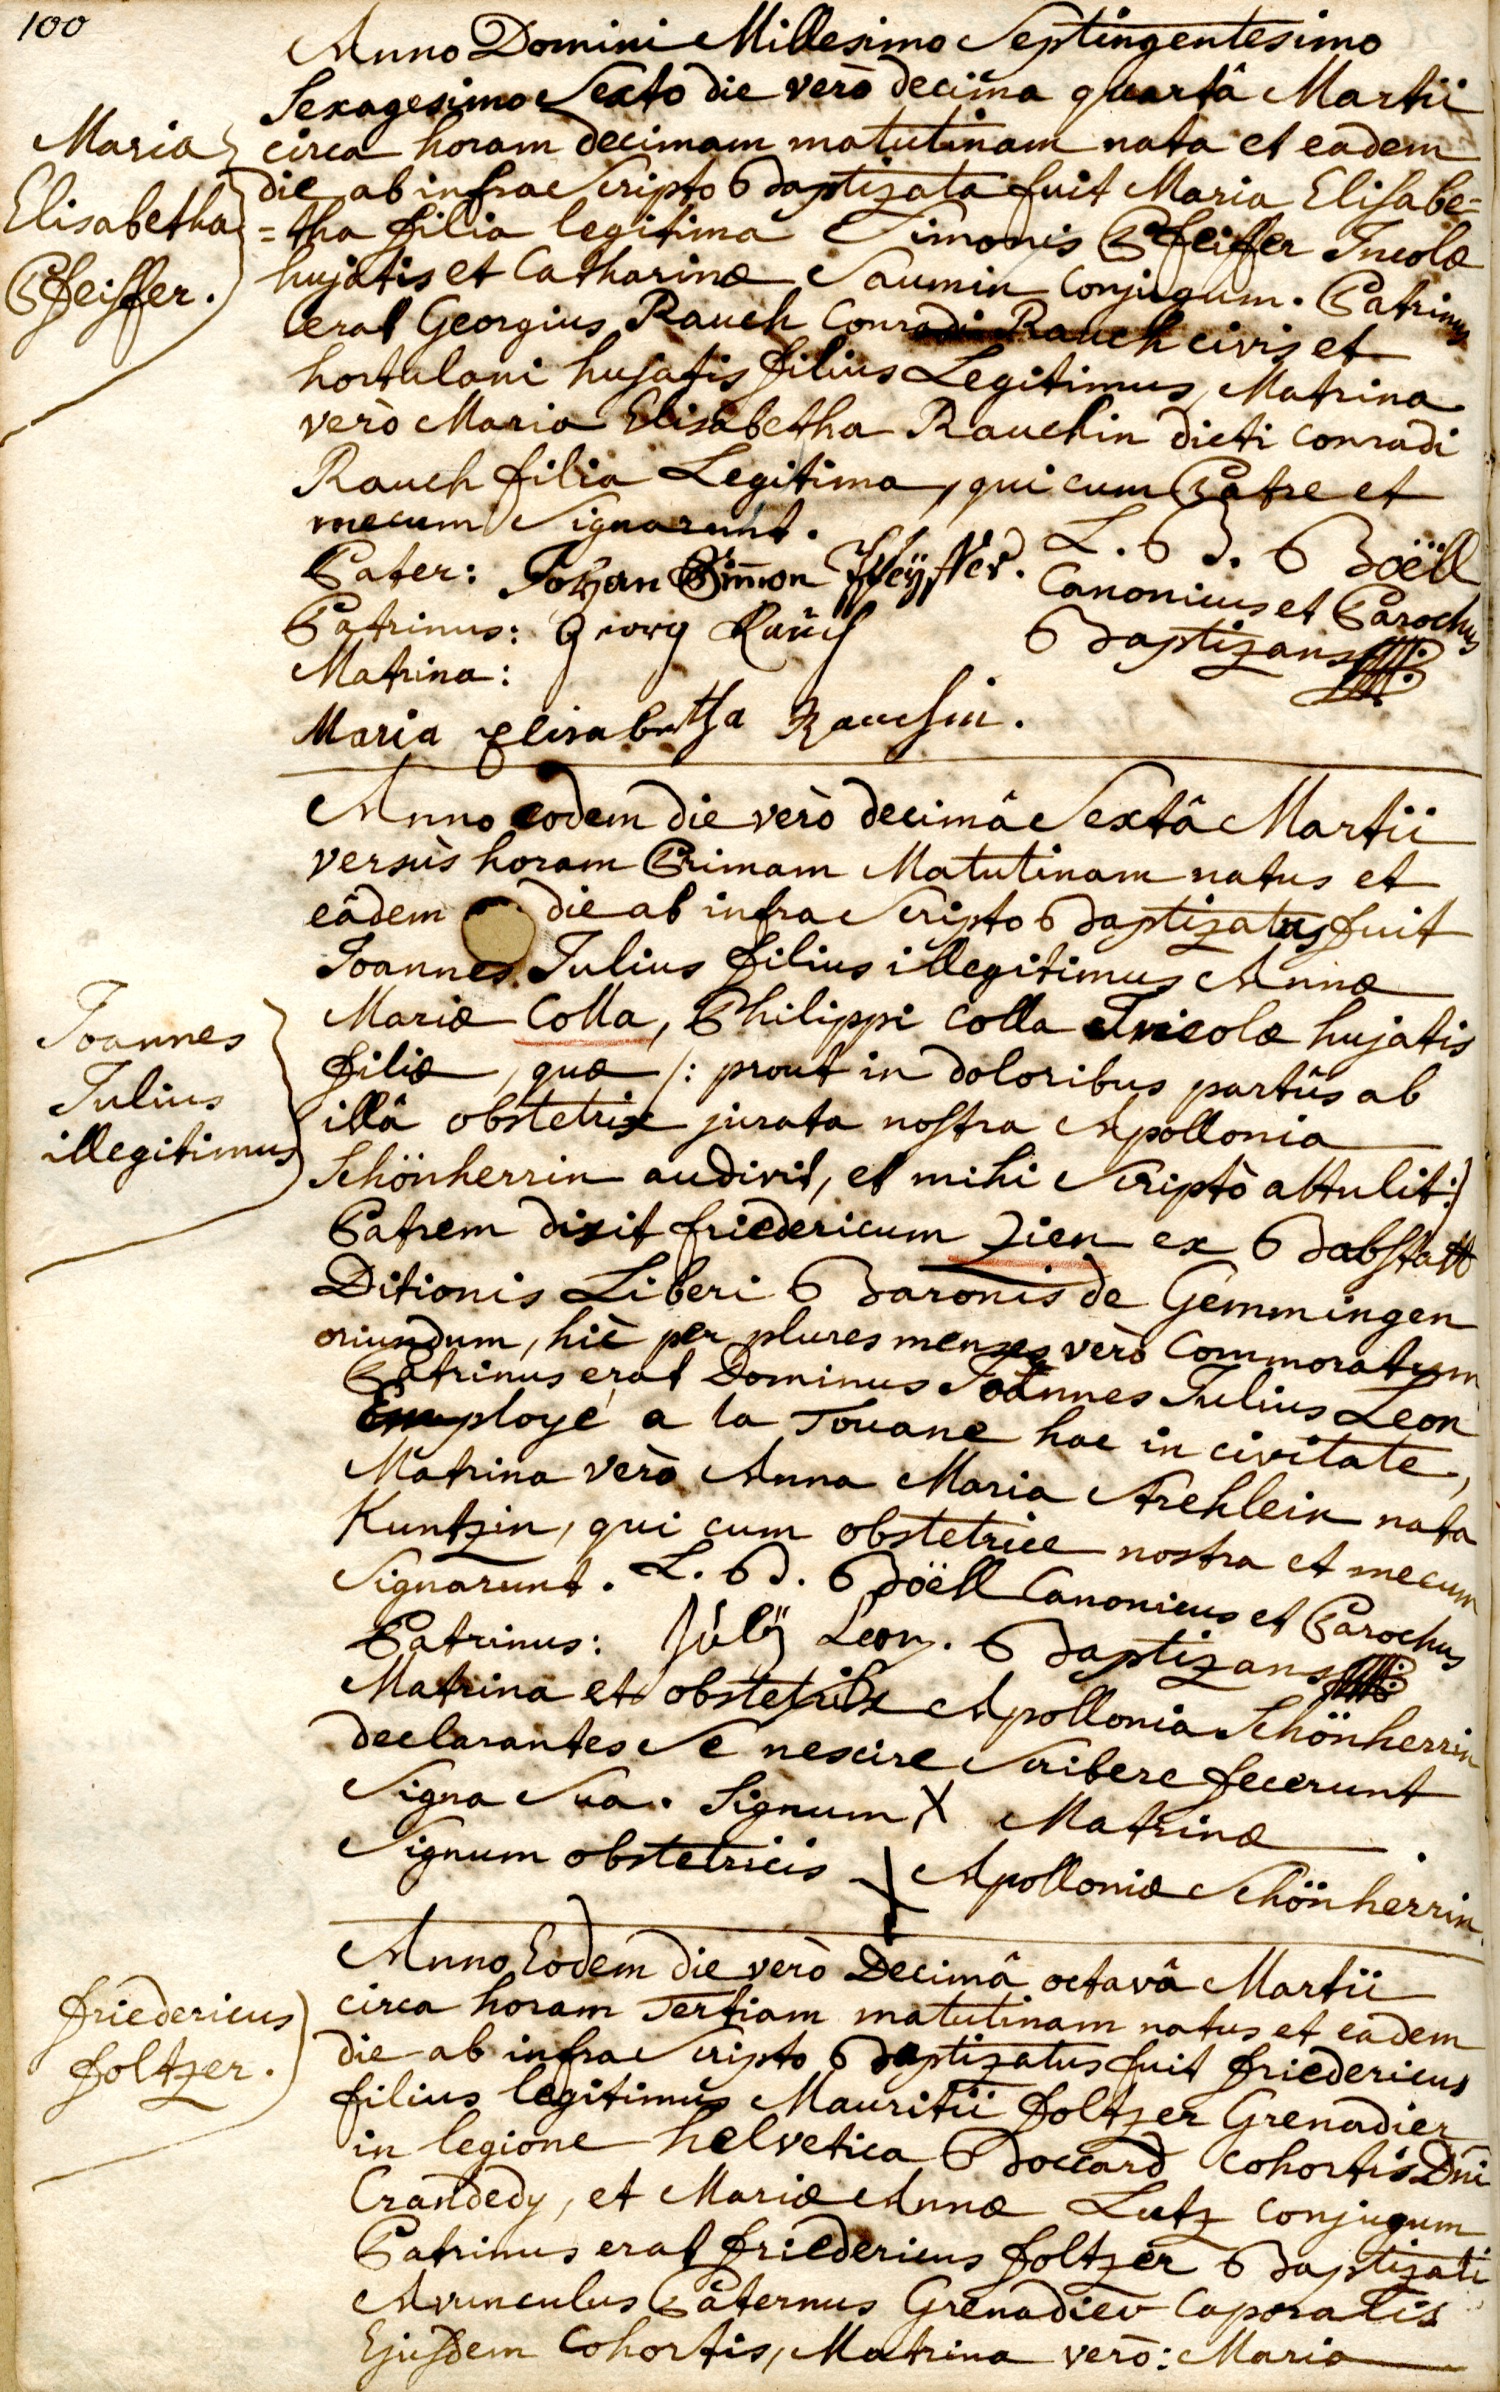 100
Anno Domini Millesimo Septingentesimo
Sexagesimo Sexto die verò decima quartâ Martii
circa horam decimam matutinam nata et eadem
die ab infra Scripto Baptizata fuit Maria Elisabe=
=tha filia legitima Simonis Pfeiffer Incolæ
hujatis et Catharinæ Saumin Conjugum. Patrinus
erat Georgius Rauch Conradi Rauch civis et
hortulani hujatis filius Legitimus, Matrina
verò Maria Elisabetha Rauchin dicti Conradi
Rauch filia Legitima, qui cum Patre et
mecum Signarunt.
Maria
Elisabetha
Pfeiffer.
L. B. Boëll
Canonicus et Parochus
Baptizans
Pater: Johan Simon Pfeÿffer.
Patrinus: Georg Rauch
Matrina:
Maria Elisabetha Rauchin.
Anno eodem die verò decimâ Sextâ Martii
versùs horam Primam Matutinam natus et
eâdem die ab infra Scripto Baptizatus fuit
Joannes Julius filius illegitimus Annæ
Mariæ Colla, Philippi Colla Incolæ hujatis
filiæ, quæ /: prout in doloribus partûs ab
illâ obstetrix jurata nostra Apollonia
Schönherrin audivit, et mihi Scriptò attulit :/
Patrem dixit friedericum Zien ex Babstatt
Ditionis Liberi Baronis de Gemmingen
oriundum, hìc per plures menses verò Commoratum
Patrinus erat Dominus Joannes Julius Leon
Employé a la Touane hac in civitate,
Matrina verò Anna Maria Strehlein nata
Kuntzin, qui cum obstetrice nostra et mecum
Signarunt. L. B. Boëll Canonicus et Parochus
Baptizans
Joannes
Julius
illegitimus
Patrinus: Julÿ Leon.
Matrina et obstetrix Apollonia Schönherrin
declarantes Se nescire Scribere fecerunt
Signa Sua. Signum X Matrinæ
Signum obstetricis X Apolloniæ Schönherrin
Anno Eodem die verò Decimâ octavâ Martii
circa horam Tertiam matutinam natus et eadem
die ab infra Scripto Baptizatus fuit friedericus
filius legitimus Mauritii foltzer Grenadier
in legione helvetica Boccard Cohortis Dni
Crandedy, et Mariæ Annæ Lutz Conjugum
Patrinus erat friedericus foltzer Baptizati
Avunculus Paternus Grenadier Caporalis
Ejusdem Cohortis, Matrina verò: Maria
friedericus
foltzer.